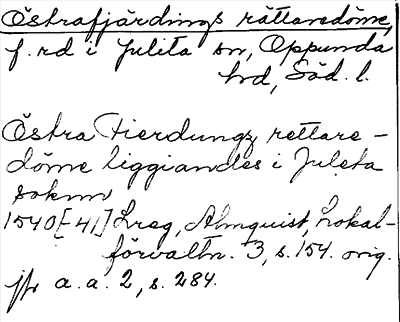 Östrafjärdings rättaredöme,
f. rd i Julita sn, Oppunda
hd, Söd. l.
Östra Fierdungz rettare-
döme liggiandes i Juleta
soknn
1540[-41] Lreg, Almquist, Lokal-
förvaltn. 3, s. 154. orig.
jfr a. a. 2, s. 284.